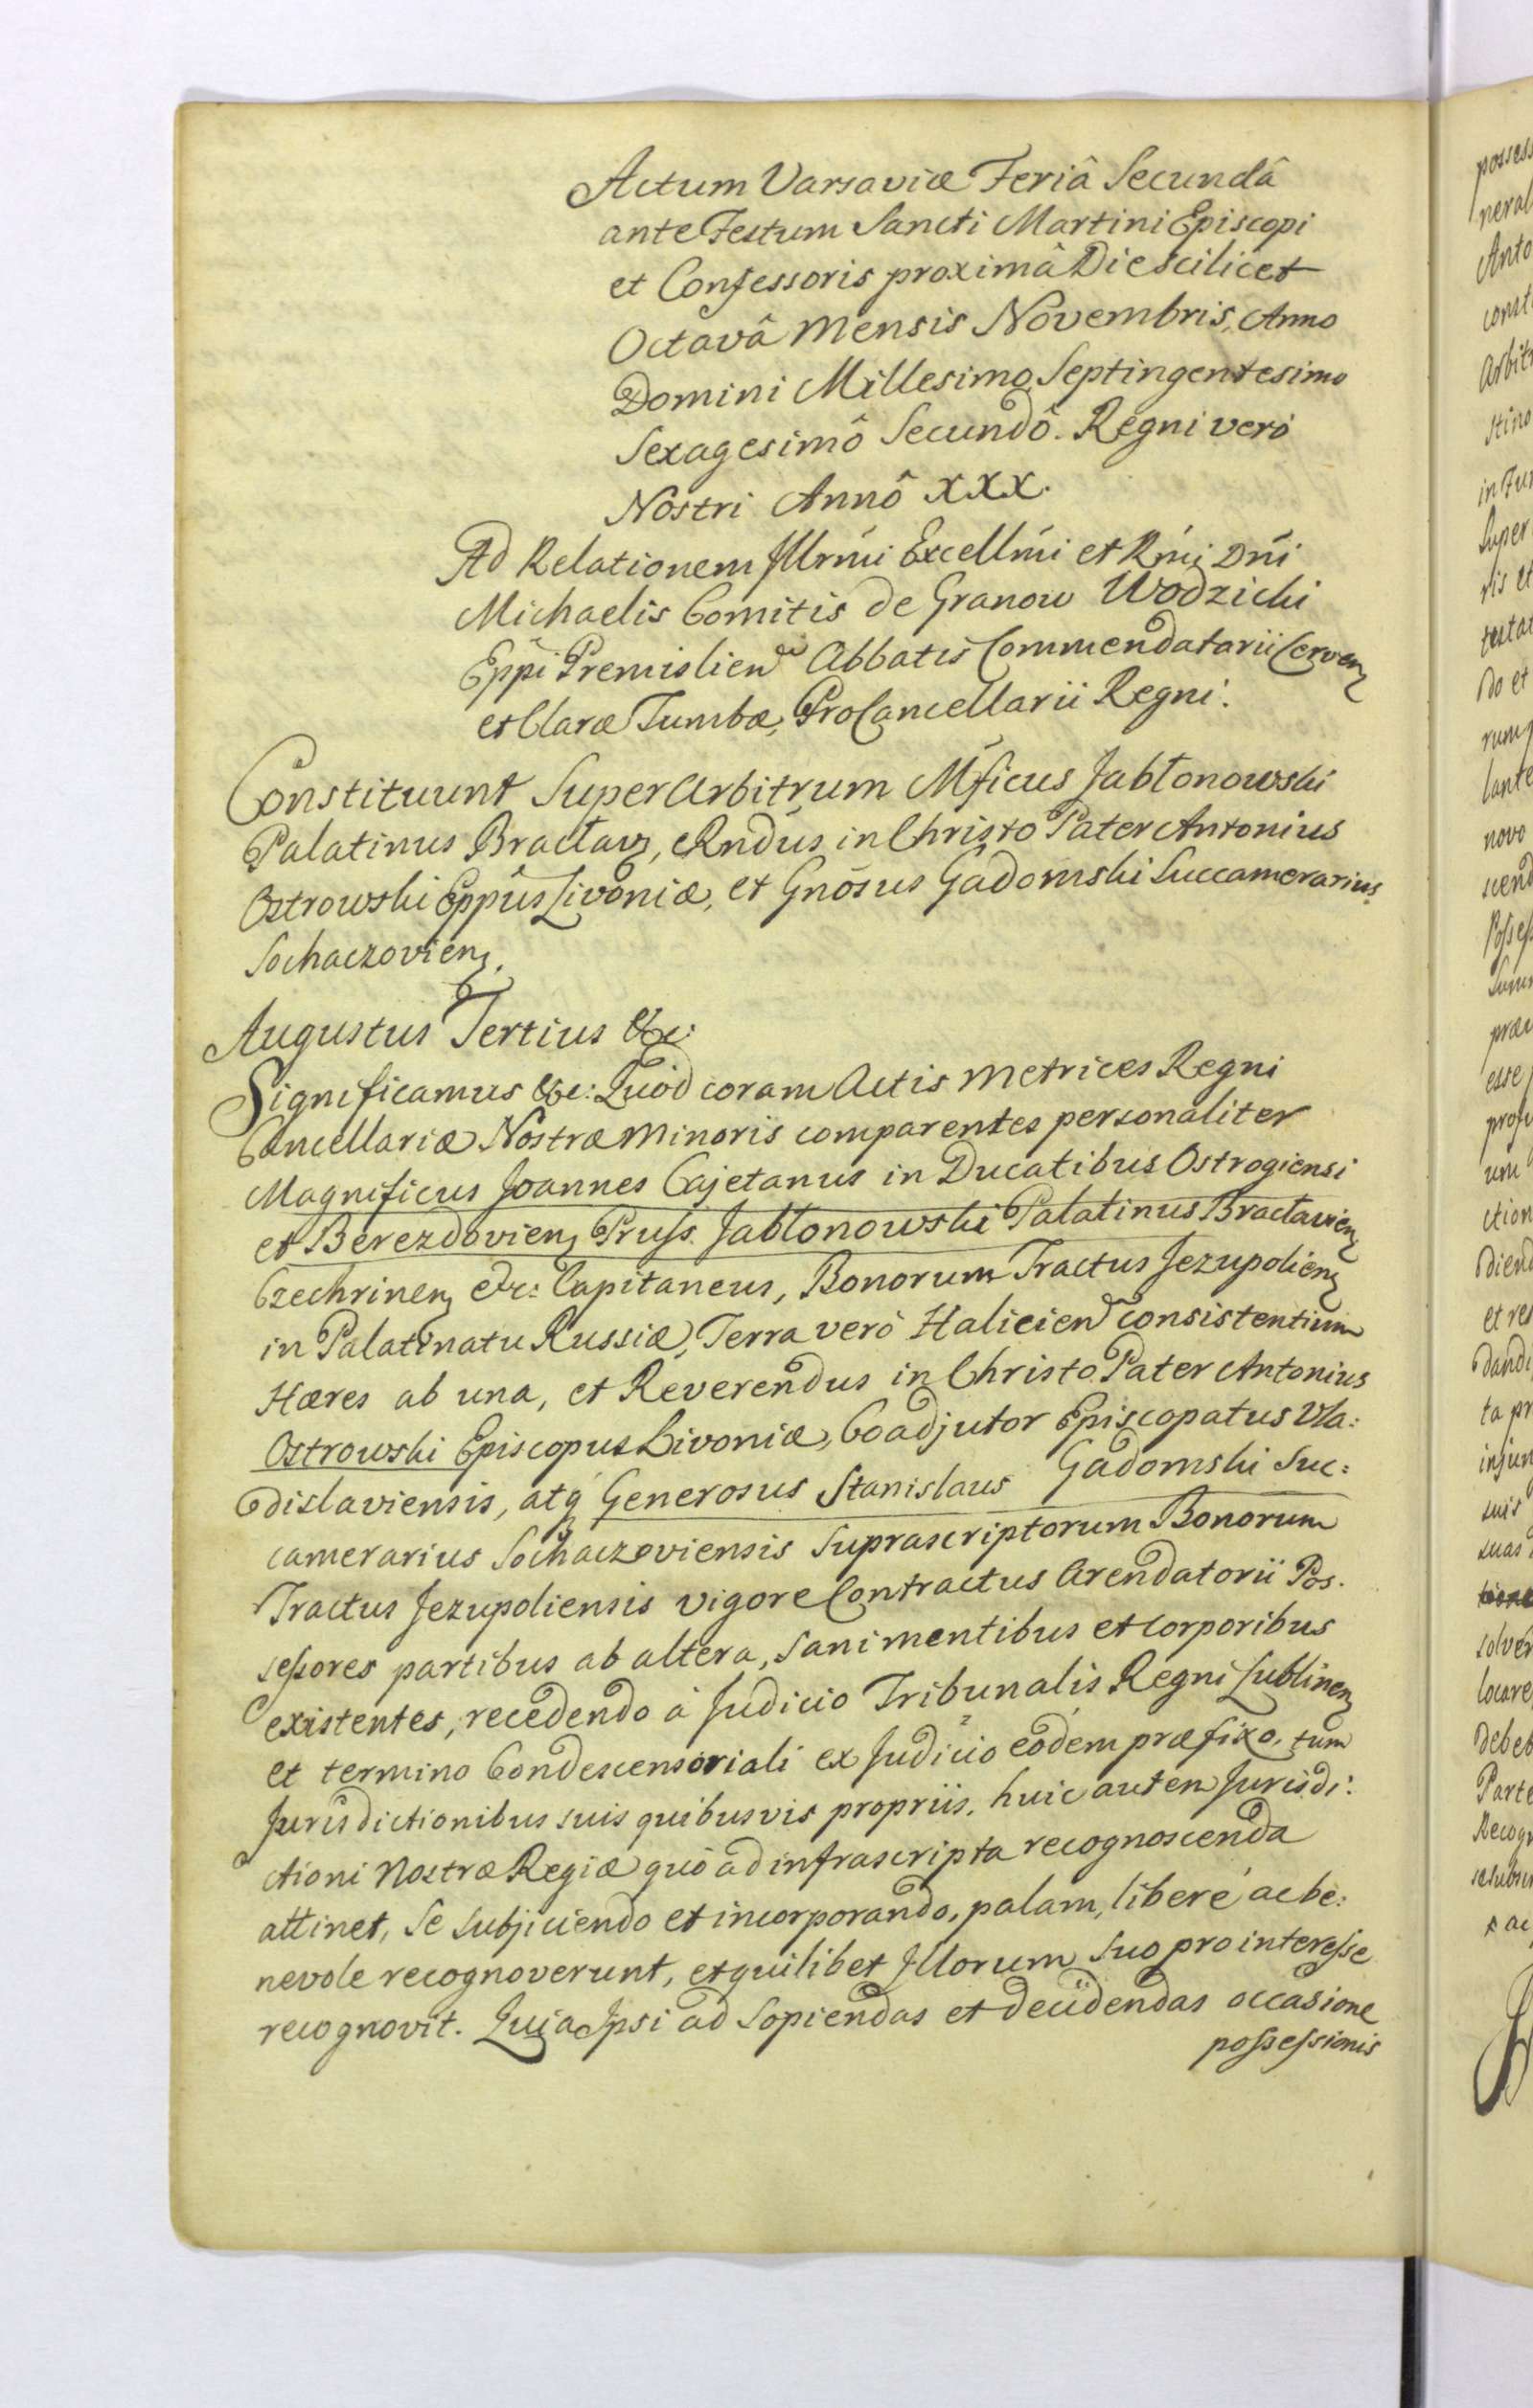 Actum Varsaviæ Feriâ Secundâ
ante Festum Sancti Martini Episcopi
et Confessoris proximâ Die scilicet
Octavâ Mensis Novembris, Anno
Domini Millesimo Septingentesimo
Sexagesimô Secundô. Regni verò
Nostri Annô XXX.
Ad Relationem Illrm̃i Excellm̃i et Rm̃i Dñi
Michaelis Comitis de Granow Wodzicki
Epp̃i Premislien Abbatis Commendatarii Cerven
et Claræ Tumbæ, ProCancellarii Regni.
Constituunt SuperArbitrum Mficus Jabłonowski
Palatinus Bracław, Rndus in Christo Pater Antonius
Ostrowski Eppûs Livoniæ, et Gnõsus Gadomski Succamerarius
Sochaczovien.
Augustus Tertius &c:
Significamus &c: Quòd coram Actis Metrices Regni
Cancellariæ Nostræ Minoris comparentes personaliter
Magnificus Joannes Cajetanus in Ducatibus Ostrogiensi
et Berezdovien, Pruss. Jabłonowski Palatinus Bracłavien
Czechrinen, &c: Capitaneus, Bonorum Tractus Jezupolien
in Palatinatu Russiæ, Terra verò Halicien consistentium
Hæres ab una, et Reverendus in Christo Pater Antonius
Ostrowski Episcopus Livoniæ, Coadjutor Episcopatus Vla:
dislaviensis, atq́ Generosus Stanislaus Gadomski Suc:
camerarius Sochaczoviensis Suprascriptorum Bonorum
Tractus Jezupoliensis vigore Contractus Arendatorii Pos.
sessores partibus ab altera, Sani mentibus et Corporibus
existentes, recedendo à Judicio Tribunalis Regni Lublinen
et termino Condescensoriali ex Judicio eodem præfixo, tum
Jurisdictionibus suis quibusvis propriis, huic autem Jurisdi:
ctioni Nostræ Regiæ quò ad infrascripta recognoscenda
attinet, Se Subjiciendo et incorporando, palam, liberé ac be:
nevole recognoverunt, et quilibet Illorum Suo pro interesse
recognovit. Quia Ipsi ad Sopiendas et decidendas occasione
possessionis